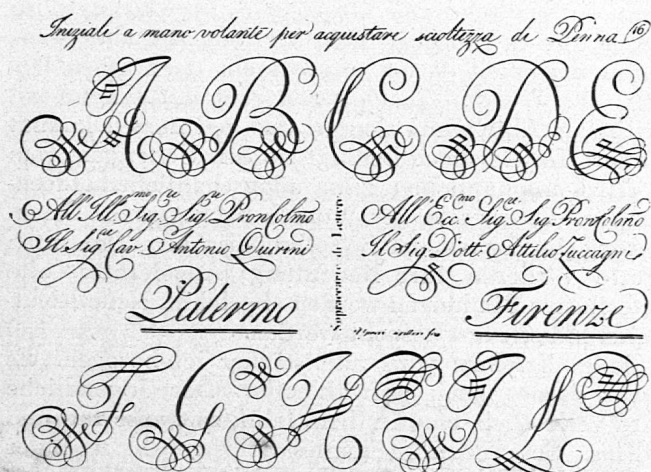 Iniziale a mano volante per acquistare scioltezza de Penna 16
A B C D E
All' Ill.mo Sig.re Sig.re Pron Colmo
Il Sig.re Cav. Antonio Quirini
Palermo
All' Ecc.mo Sig.re Sig Pron Colmo
Il Sig Dott. Attilio Zuccagni
Firenze
F G H I